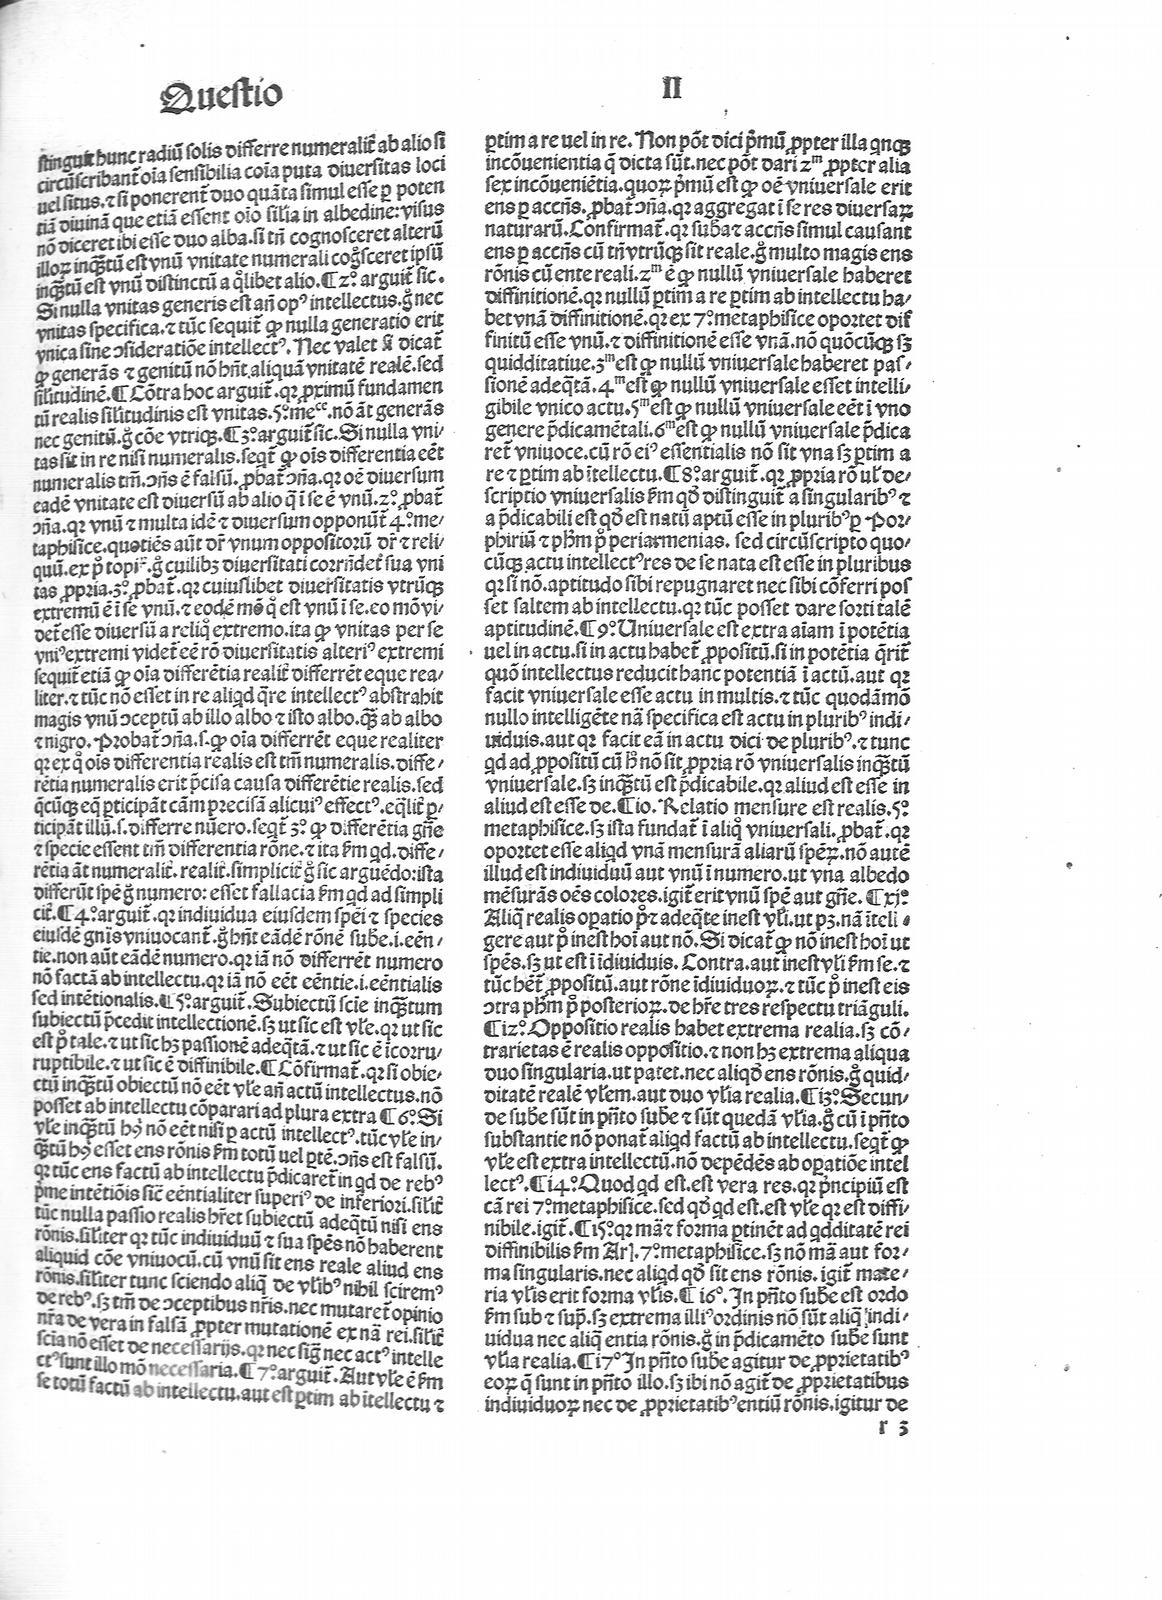 Questio
II
stinguit hunc radiū solis differre numeralit̄ ab alio si
circūscribant̄ oīa sensibilia coīa puta diuersitas loci
uel situs.⁊ si ponerent̄ duo quāta simul esse ꝑ poten
tiā diuinā que etiā essent oīo sīlia in albedine: visus
nō diceret ibi esse duo alba.si tn̄ cognosceret alterū
illoꝝ inq̄tū est vnū vnitate numerali cog̊sceret ipsū
inq̄tū est vnū distinctū a q̄libet alio.¶ 2º arguit̄ sic.
Si nulla vnitas generis est añ opꝰ intellectus.g̊ nec
vnitas specifica.⁊ tūc sequit̄ ꝙ nulla generatio erit
vnica sine ↄsideratiōe intellectꝰ. Nec valet si dicat̄
ꝙ generās ⁊ genitū nō hn̄t aliquā vnitatē realē.sed
silitudinē.¶ Cōtra hoc arguit̄.qꝛ ꝓximū fundamen
tū realis silitudinis est vnitas.5º meᶜᵉ.nō āt generās
nec genitū.g̊ cōe vtriqꝫ.¶ 3º arguit̄ sic. Si nulla vni/
tas sit in re nisi numeralis.seqt̄ ꝙ oīs differentia eēt
numeralis tm̄.ↄñs ē falsū.ꝓbat̄ ↄña.qꝛ oē diuersum
eadē vnitate est diuersū ab alio q̄ ī se ē vnū.2º ꝓbat̄
ↄña.qꝛ vnū ⁊ multa idē ⁊ diuersum opponūt̄ 4º me/
taphisice.quotiēs aūt dr̄ vnum oppositorū dr̄ ⁊ reli/
quū.ex p̊ topi.g̊ cuilibꝫ diuersitati corrn̄det̄ sua vni
tas ꝓpria.3º ꝓbat̄.qꝛ cuiuslibet diuersitatis vtrūqꝫ
extremū ē ī se vnū.⁊ eodē mō q̊ est vnū ī se.eo mō vi/
det̄ esse diuersū a reliq̊ extremo.ita ꝙ vnitas per se
vniꝰ extremi videt̄ eē rō diuersitatis alteriꝰ extremi
sequit̄ etiā ꝙ oīa differētia realit̄ differrēt eque rea/
liter.⁊ tūc nō esset in re aliqd q̄re intellectꝰ abstrahit
magis vnū ↄceptū ab illo albo ⁊ isto albo.q̄ꝫ ab albo
⁊ nigro. Probat̄ ↄña.s.ꝙ oīa differrēt eque realiter
qꝛ ex q̊ oīs differentia realis est tm̄ numeralis.diffe/
rētia numeralis erit p̄cisa causa differētie realis.sed
q̄cūqꝫ eq̄ ꝑticipāt cām precisā alicuiꝰ effectꝰ.eq̄lit̄ ꝑ/
ticipāt illū.s.differre nūero.seqt̄ 3º ꝙ differētia gn̄e
⁊ specie essent tm̄ differentia rōne.⁊ ita s̄m qd.diffe/
rētia āt numeralit̄.realit̄.simplicit̄ g̊ sic arguēdo: ista
differūt spē g̊ numero: esset fallacia s̄m qd ad simpli
cit̄.¶ 4º arguit̄.qꝛ indiuidua eiusdem spēi ⁊ species
eiusdē gn̄is vniuocant̄.g̊ hn̄t eādē rōnē sube.i.eēn/
tie.non aūt eādē numero.qꝛ iā nō differrēt numero
nō factā ab intellectu.qꝛ iā nō eēt eēntie.i.eēntialis
sed intētionalis.¶ 5º arguit̄. Subiectū scie inqꝫtum
subiectū p̄cedit intellectionē.sꝫ ut sic est vl̄e.qꝛ ut sic
est p̊ tale.⁊ ut sic hꝫ passionē adeq̄tā.⁊ ut sic ē īcorru/
ruptibile.⁊ ut sic ē diffinibile.¶ Cōfirmat̄.qꝛ si obie/
ctū inqꝫtū obiectū nō eēt vl̄e añ actū intellectus.nō
posset ab intellectu cōparari ad plura extra ¶ 6º. Si
vl̄e inqꝫtū hꝰ nō eēt nisi ꝑ actū intellectꝰ.tūc vl̄e in/
qꝫtū hꝰ esset ens rōnis s̄m totū uel ꝑtē.ↄñs est falsū.
qꝛ tūc ens factū ab intellectu p̄dicaret̄ in qd de rebꝰ
p̄me intētiōis sic̄ eēntialiter superiꝰ de inferiori.silit̄
tūc nulla passio realis hr̄et subiectū adeq̄tū nisi ens
rōnis.sīliter qꝛ tūc indiuiduū ⁊ sua spēs nō haberent
aliquid cōe vniuocū.cū vnū sit ens reale aliud ens
rōnis.siliter tunc sciendo aliq̄ de vl̄ibꝰ nihil sciremꝰ
de rebꝰ.sꝫ tm̄ de ↄceptibus nr̄is.nec mutaret̄ opinio
nr̄a de vera in falsā ꝓpter mutationē ex nā rei.silit̄
scīa nō esset de necessarijs.qꝛ nec sign̄ nec actꝰ intelle
ctꝰ sunt illo mō necessaria.¶ 7º arguit̄. Aut vl̄e ē s̄m
se totū factū ab intellectu.aut est ꝑtim ab ītellectu ⁊
ꝑtim a re uel in re. Non pōt dici p̄mū ꝓpter illa qnqꝫ
incōuenientia q̄ dicta sūt.nec pōt dari 2ᵐ ꝓpter alia
sex incōueniētia.quoꝝ p̄mū est ꝙ oē vniuersale erit
ens ꝑ accn̄s.ꝓbat̄ ↄña.qꝛ aggregat ī se res diuersaꝝ
naturarū. Confirmat̄.qꝛ sub̄a ⁊ accn̄s simul causant
ens ꝑ accn̄s cū tn̄ vtrūqꝫ sit reale.g̊ multo magis ens
rōnis cū ente reali.2ᵐ ē ꝙ nullū vniuersale haberet
diffinitionē.qꝛ nullū ꝑtim a re ꝑtim ab intellectu ha/
bet vnā diffinitionē.qꝛ ex 7º metaphisice oportet dif
finitū esse vnū.⁊ diffinitionē esse vnā.nō quōcūqꝫ sꝫ
quidditatiue.3ᵐ est ꝙ nullū vniuersale haberet pas/
sionē adeq̄tā.4ᵐ est ꝙ nullū vniuersale esset intelli/
gibile vnico actu.5ᵐ est ꝙ nullū vniuersale eēt ī vno
genere p̄dicamētali.6ᵐ est ꝙ nullū vniuersale p̄dica
ret̄ vniuoce.cū rō eiꝰ essentialis nō sit vna sꝫ ꝑtim a
re ⁊ ꝑtim ab ītellectu.¶ 8º arguit̄.qꝛ ꝓpria rō ul̄ de/
scriptio vniuersalis s̄m qđ distinguit̄ a singularibꝰ ⁊
a p̄dicabili est qđ est natū aptū esse in pluribꝰ ꝑ Por/
phiriū ⁊ ph̄m p̊ periarmenias. sed circūscripto quo/
cūqꝫ actu intellectꝰ res de se nata est esse in pluribus
qꝛ si nō.aptitudo sibi repugnaret nec sibi cōferri pos
set saltem ab intellectu.qꝛ tūc posset dare sorti talē
aptitudinē.¶ 9º Uniuersale est extra aīam ī potētia
uel in actu.si in actu habet̄ ꝓpositū.si in potētia q̄rit̄
quō intellectus reducit hanc potentiā ī actū.aut qꝛ
facit vniuersale esse actu in multis.⁊ tūc quodāmō
nullo intelligēte nā specifica est actu in pluribꝰ indi/
uiduis.aut qꝛ facit eā in actu dici de pluribꝰ.⁊ tunc
qd ad ꝓpositū cū h̊ nō sit ꝓpria rō vniuersalis inqꝫtū
vniuersale.sꝫ inqꝫtū est p̄dicabile.qꝛ aliud est esse in
aliud est esse de.¶ 10. Relatio mensure est realis.5º
metaphisice.sꝫ ista fundat̄ ī aliq̊ vniuersali.ꝓbat̄.qꝛ
oportet esse aliqd vnā mensurā aliarū spēꝝ.nō autē
illud est indiuiduū aut vnū ī numero.ut vna albedo
mēsurās oēs colores.igit̄ erit vnū spē aut gn̄e.¶ xjº
Aliq̄ realis oꝑatio p̊ ⁊ adeq̄te inest vl̄i.ut pꝫ.nā ītelli
gere aut p̊ inest hoī aut nō. Si dicat̄ ꝙ nō inest hoī ut
spēs.sꝫ ut est ī īdiuiduis. Contra.aut inest vl̄i s̄m se.⁊
tūc hēt̄ ꝓpositū.aut rōne īdiuiduoꝝ.⁊ tūc p̊ inest eis
ↄtra ph̄m p̊ posterioꝝ.de hr̄e tres respectu triāguli.
¶ 12º Oppositio realis habet extrema realia.sꝫ cō/
trarietas ē realis oppositio.⁊ non hꝫ extrema aliqua
duo singularia.ut patet.nec aliqđ ens rōnis.g̊ quid/
ditatē realē vl̄em.aut duo vl̄ia realia.¶ 13º. Secun/
de sube sūt in pn̄to sube ⁊ sūt quedā vl̄ia.g̊ cū ī pn̄to
substantie nō ponat̄ aliqd factū ab intellectu.seqt̄ ꝙ
vl̄e est extra intellectū.nō depēdēs ab oꝑatiōe intel
lectꝰ.¶ 14º Quod qd est.est vera res.qꝛ p̄ncipiū est
cā rei 7º metaphisice.sed qđ qd est.est vl̄e qꝛ est diffi/
nibile.igit̄.¶ 15º qꝛ mā ⁊ forma ꝑtinēt ad qdditatē rei
diffinibilis s̄m Ar̄.7º metaphisice.sꝫ nō mā aut for/
ma singularis.nec aliqd qđ sit ens rōnis. igit̄ mate/
ria vl̄is erit forma vl̄is.¶ 16º. In pn̄to sube est ordo
s̄m sub ⁊ sup̄.sꝫ extrema illiꝰ ordinis nō sūt aliq̄ indi/
uidua nec aliq̄ entia rōnis.g̊ in p̄dicamēto sube sunt
vl̄ia realia.¶ 17º In pn̄to sube agitur de ꝓprietatibꝰ
eoꝝ q̄ sunt in pn̄to illo.sꝫ ibi nō agit̄ de ꝓprietatibus
indiuiduoꝝ nec de ꝓprietatibꝰ entiū rōnis.igitur de
r 3